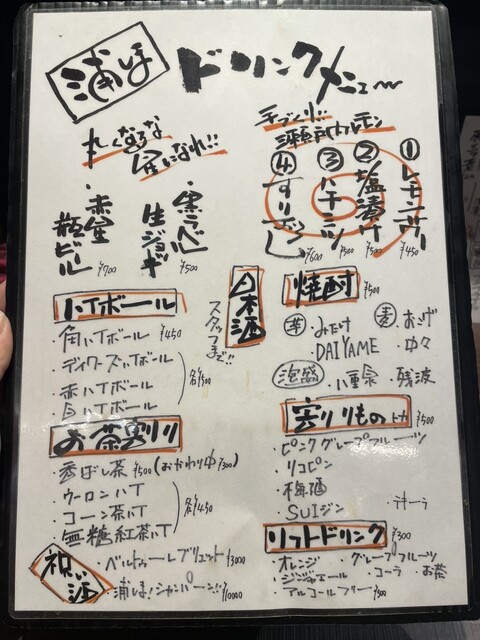 浦しま ドリンクメニュ〜
丸くなるな
星になれ!!
・黒ラベル
生ジョッキ
¥500
・赤星
瓶ビール
¥700
手づくり!!
瀬戸内レモン
①レモンサワー ¥450
②塩漬け ¥500
③ハチミツ ¥500
④すりおろし ¥600
ハイボール
・角ハイボール ¥450
・デュワーズハイボール
・赤ハイボール
・白ハイボール
各¥500
日本酒
スタッフまで!!
焼酎 ¥500
芋 ・みたけ
・DAIYAME
麦
・中々
泡盛 ・八重泉 ・残波
お茶割り
・香ばし茶 ¥500 (おかわり中¥300)
・ウーロンハイ
・コーン茶ハイ
・無糖紅茶ハイ
各¥450
割りものトカ ¥500
・ピンクグレープフルーツ
・リコピン
・梅酒
・SUIジン
ソフトドリンク ¥300
・オレンジ ・グレープフルーツ
・ジンジャエール ・コーラ ・お茶
・アルコールフリー ¥500
祝い酒
・ベルトゥールブリュット ¥3000
・浦しま!シャンパーン!! ¥10000